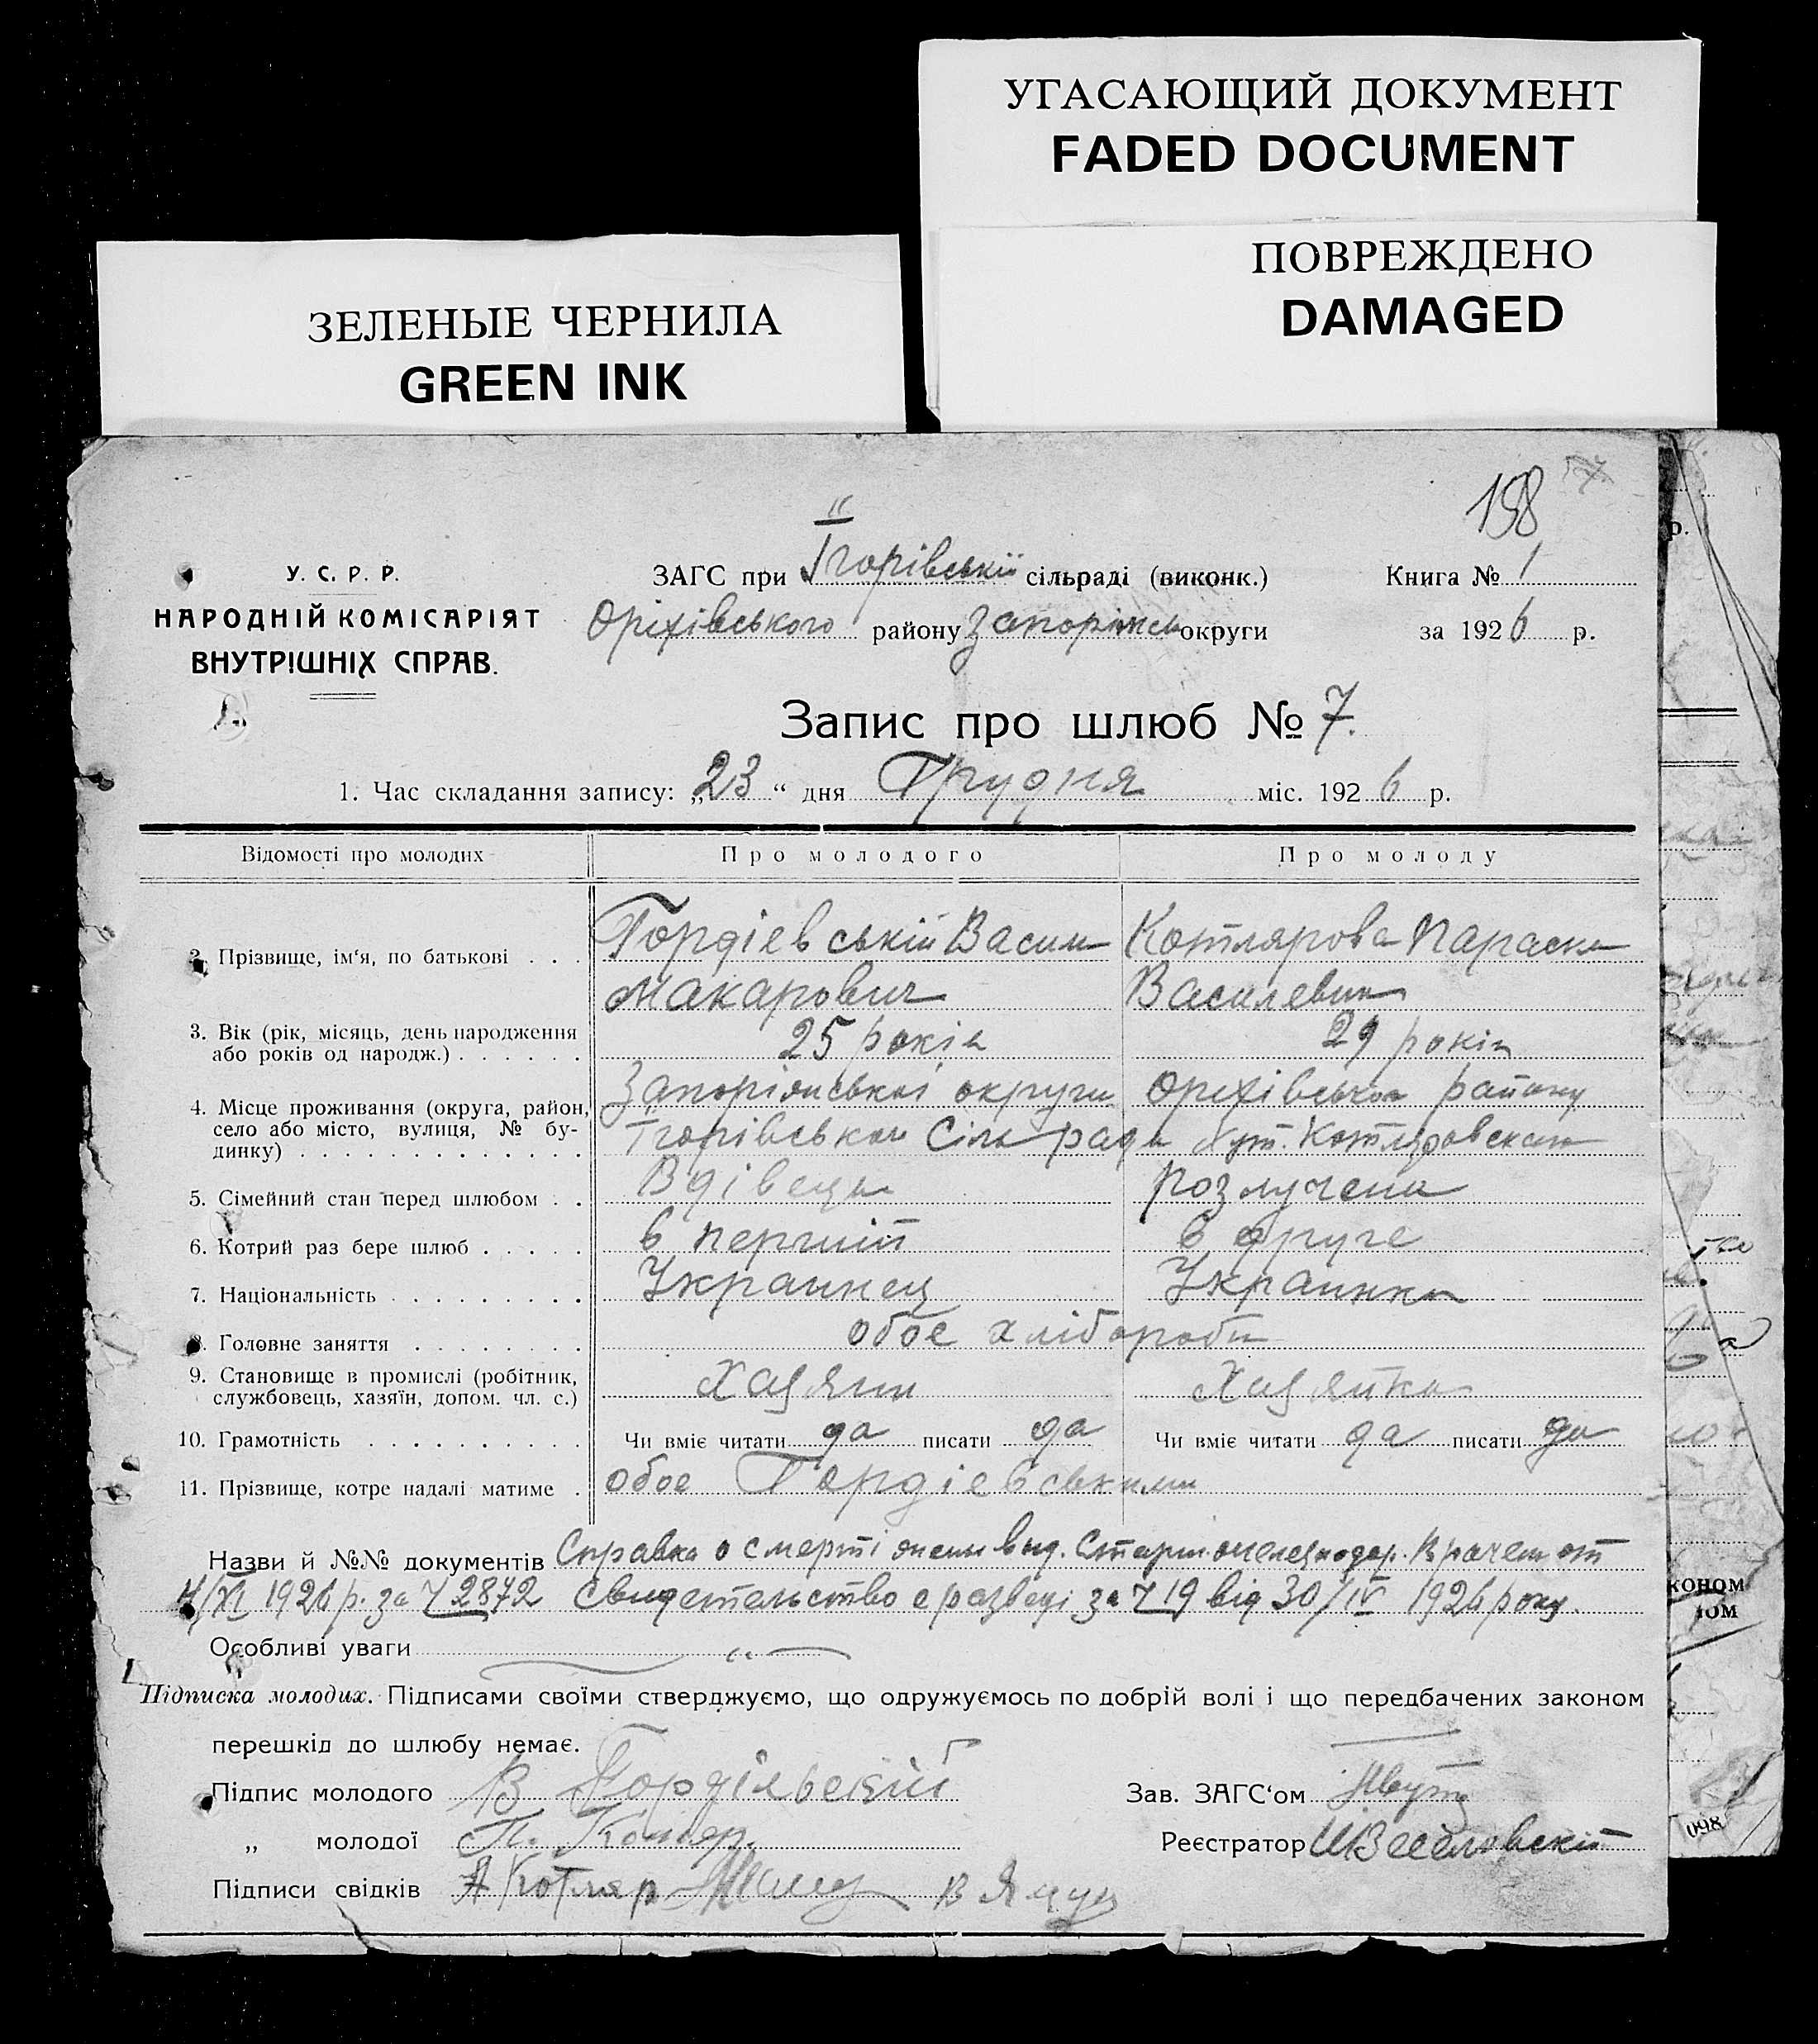 УГАСАЮЩИЙ ДОКУМЕНТ
FADED DOCUMENT
ПОВРЕЖДЕНО
DAMAGED
ЗЕЛЕНЫЕ ЧЕРНИЛА
GREEN INK
198
У. С. Р. Р.
НАРОДНІЙ КОМІСАРІЯТ
ВНУТРІШНІХ СПРАВ.
ЗАГС при Ігорівській сільраді (виконк.)
Книга № 1
Оріхівського району Запоріжськ округи
за 1926 р.
Запис про шлюб № 7.
1. Час складання запису: „23“ дня Грудня міс. 1926 р.
Відомості про молодих
Про молодого
Про молоду
2. Прізвище, ім‘я, по батькові . . .
Гордієвській Васил
Макарович
Котлярова Параска
Василевна
3. Вік (рік, місяць, день народження
або років од народж.) . . . . . .
25 років
29 років
4. Місце проживання (округа, район,
село або місто, вулиця, № бу-
динку) . . . . . . . . . . . . .
Запоріжської округи Оріхівського району
Ігорівськои Сіль ради Хут. Котляровскаго
5. Сімейний стан перед шлюбом . .
Вдівець
розлучена
6. Котрий раз бере шлюб . . . . .
в перший
в друге
7. Національність . . . . . . . . .
Украинец
Украинка
8. Головне заняття . . . . . . . .
обоє хлібороби
9. Становище в промислі (робітник,
службовець, хазяїн, допом. чл. с.)
Хазяин
Хазяйка
10. Грамотність . . . . . . . . . .
Чи вміє читати да писати да
Чи вміє читати да писати да
11. Прізвище, котре надалі матиме .
обое Гордієвськими
Назви й №№ документів Справка о смерті жени вид. Старш. Врачем от
4/XI 1926 р. за Ч 2872 Свидетельство о разводі за Ч 19 від 30/IV 1926 року.
Особливі уваги
Підписка молодих. Підписами своїми стверджуємо, що одружуємось по добрій волі і що передбачених законом
перешкід до шлюбу немає.
Підпис молодого В Гордієвский
Зав. ЗАГС‘ом
„ молодої П. Котляр.
Реєстратор Веселовскій
Підписи свідків А Котляр
КОНОМ
098